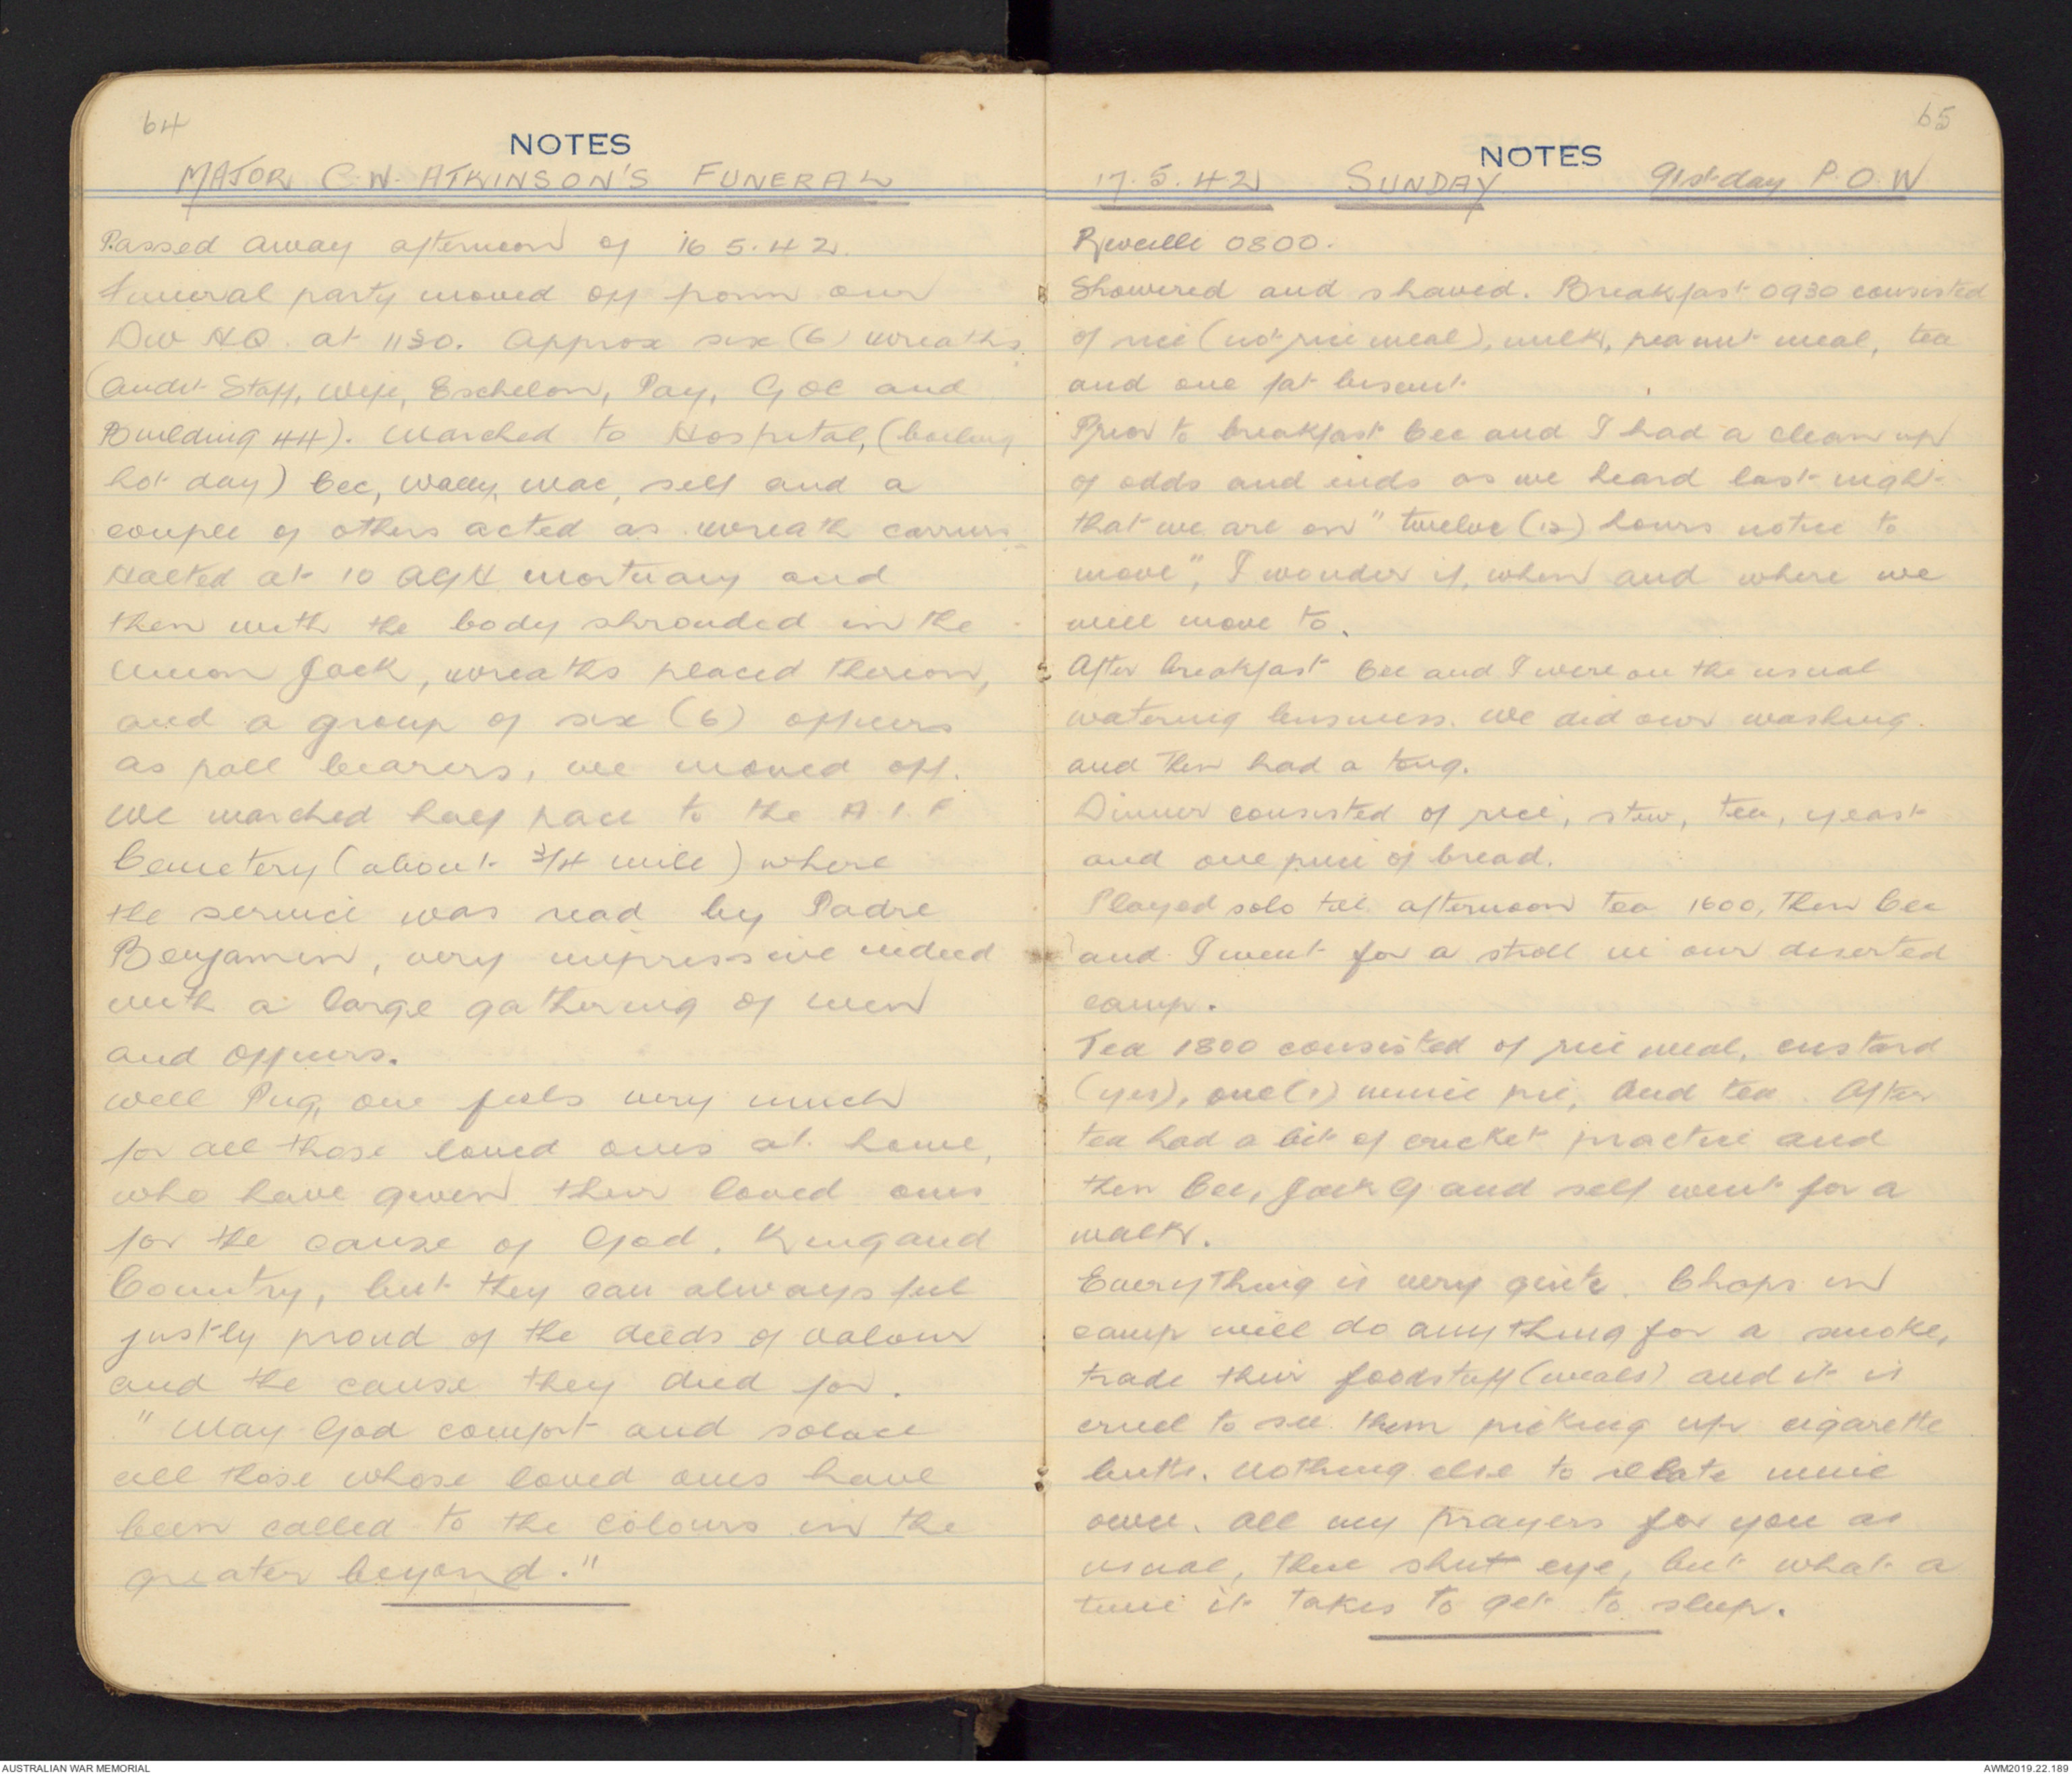 64
NOTES
MAJOR C.W. ATKINSON'S FUNERAL
Passed away afternoon of 16.5.42.
Funeral party moved off from our
Div HQ. at 1130. Approx six (6) wreaths
(Audit Staff, Wife, Eschelon, Pay, GOC and
Building 44). Marched to Hospital, (boiling
hot day) Cec, Wally, Mac, self and a
couple of others acted as wreath carriers.
Halted at 10 AGH mortuary and
then with the body shrouded in the
Union Jack, wreaths placed thereon,
and a group of six (6) officers
as pall bearers, we moved off.
We marched half pace to the A.I.F
Cemetery (about 3/4 mile) where
the service was read by Padre
Benjamin, very impressive indeed
with a large gathering of men
and officers.
Well Pug, one feels very much
for all those loved ones at home,
who have given their loved ones
for the cause of God, King and
Country, but they can always feel
justly proud of the deeds of valour
and the cause they died for.
"May God comfort and solace
all those whose loved ones have
been called to the colours in the
greater beyond."
65
NOTES
17.5.42 SUNDAY 91st day P.O.W
Reveille 0800.
Showered and shaved. Breakfast 0930 consisted
of rice (not rice meal), milk, peanut meal, tea
and one fat biscuit.
Prior to breakfast Cec and I had a clean up
of odds and ends as we heard last night
that we are on "twelve (12) hours notice to
move", I wonder if, when and where we
will move to.
After breakfast Cec and I were on the usual
watering business. We did our washing
and then had a tong.
Dinner consisted of rice, stew, tea, yeast
and one piece of bread.
Played solo till afternoon tea 1600, then Cec
and I went for a stroll in our deserted
camp.
Tea 1800 consisted of rice meal, custard
(yes), one (1) mince pie, and tea. After
tea had a bit of cricket practice and
then Cec, Jack G and self went for a
walk.
Everything is very qiute. Chaps in
camp will do anything for a smoke,
trade their foodstuff (meals) and it is
cruel to see them picking up cigarette
butts. Nothing else to relate mine
own. All my prayers for you as
usual, then shut eye, but what a
time it takes to get to sleep.
AUSTRALIAN WAR MEMORIAL
AWM2019.22.189